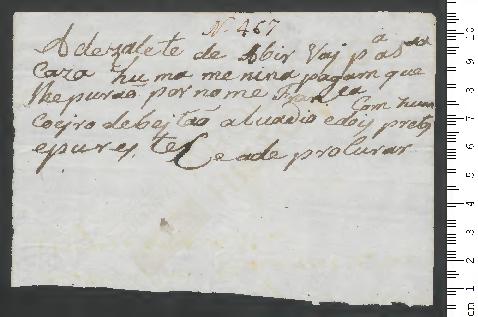 N. 467
A dezasete de Abir Vaj pa as da
Caza huma menina pagam que
lhe purão por nome Franca Com hum
Coejro debejtão aluadio e dojs pretos
epur ej. te Ce ade proCurar